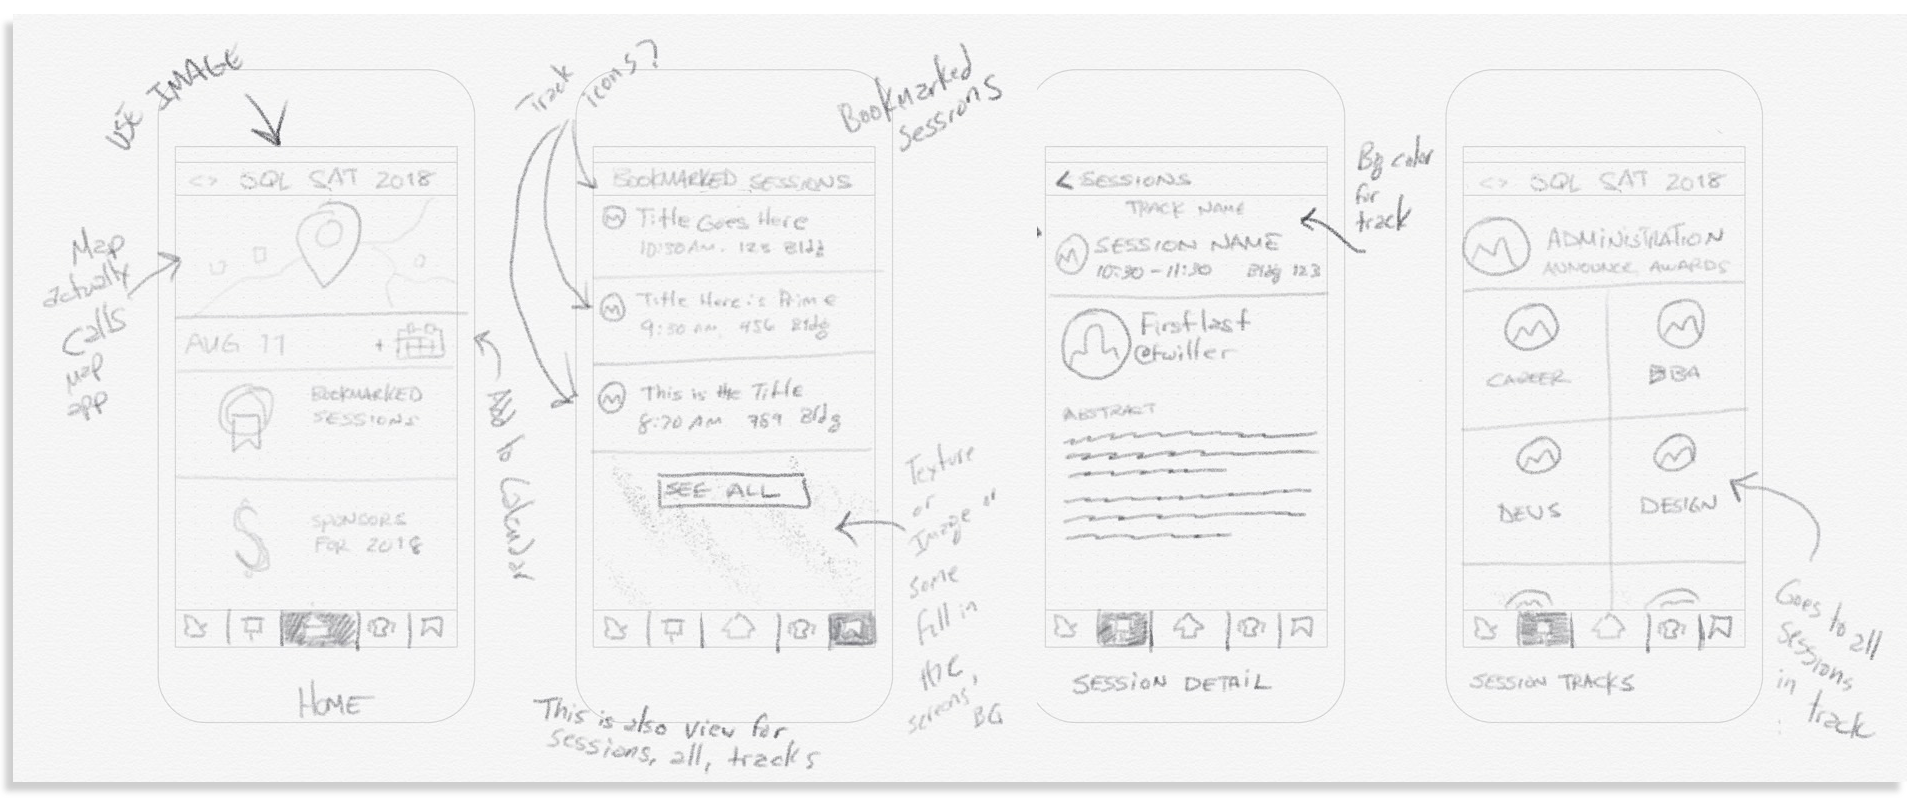 USE IMAGE
<> SQL SAT 2018
Map
actually
Calls
map
app
AUG 11
+
Add to Calendar
BOOKMARKED
SESSIONS
SPONSORS
FOR 2018
HOME
Track
icons?
Bookmarked
Sessions
BOOKMARKED SESSIONS
Title Goes Here
10:30 AM. 123 Bldg
Title Here is Prime
9:30 AM. 456 Bldg
This is the Title
8:20 AM 789 Bldg
SEE ALL
Texture
or
Image or
some
fill in
the
screens,
BG
This is also view for
sessions, all, tracks
< SESSIONS
TRACK NAME
SESSION NAME
10:30 - 11:30 Bldg 123
First last
@twitter
ABSTRACT
SESSION DETAIL
Bg color
for
track
<> SQL SAT 2018
ADMINISTRATION
ANNOUNCE AWARDS
CAREER
DBA
DEVS
DESIGN
SESSION TRACKS
Goes to all
sessions
in
track